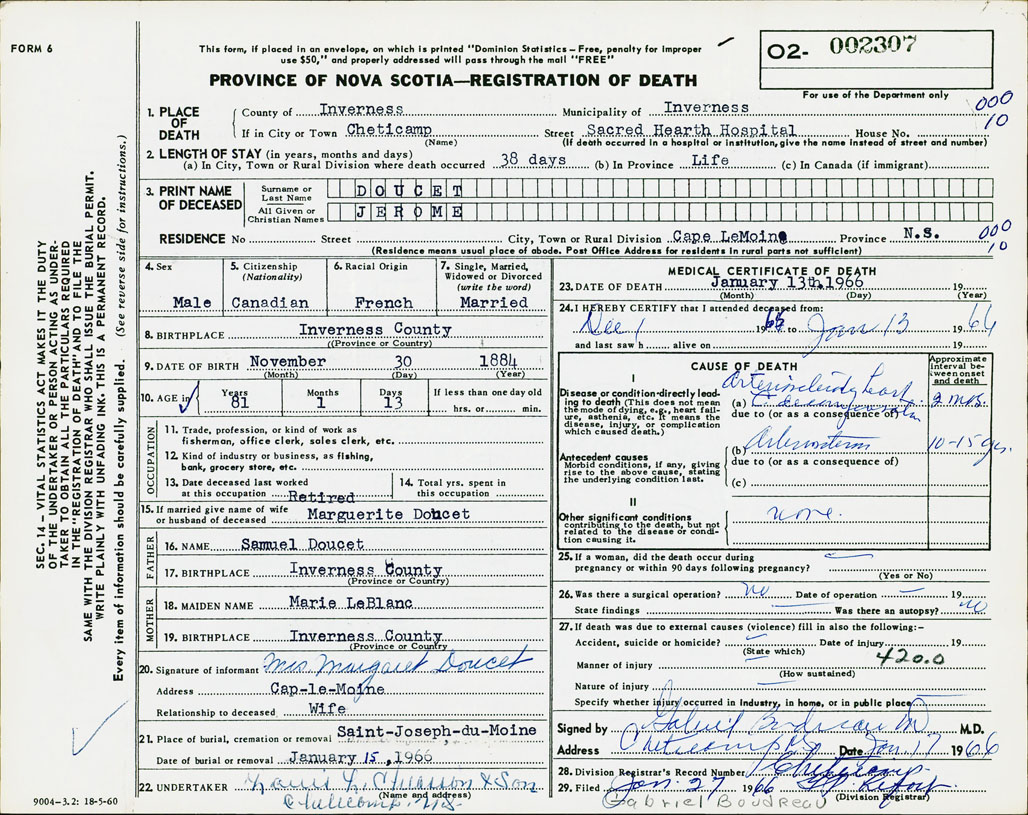 FORM 6
This form, if placed in an envelope, on which is printed "Dominion Statistics – Free, penalty for improper
use $50," and properly addressed will pass through the mail "FREE"
PROVINCE OF NOVA SCOTIA—REGISTRATION OF DEATH
O2- 002307
For use of the Department only
000
10
1. PLACE OF DEATH
County of Inverness Municipality of Inverness
If in City or Town Cheticamp Street Sacred Hearth Hospital House No.
(Name) (If death occurred in a hospital or institution, give the name instead of street and number)
2. LENGTH OF STAY (in years, months and days)
(a) In City, Town or Rural Division where death occurred 38 days (b) In Province Life (c) In Canada (if immigrant)
3. PRINT NAME OF DECEASED
Surname or Last Name DOUCET
All Given or Christian Names JEROME
RESIDENCE No Street City, Town or Rural Division Cape LeMoine Province N.S.
000
10
(Residence means usual place of abode. Post Office Address for residents in rural parts not sufficient)
4. Sex
Male
5. Citizenship
(Nationality)
Canadian
6. Racial Origin
French
7. Single, Married,
Widowed or Divorced
(write the word)
Married
8. BIRTHPLACE Inverness County
(Province or Country)
9. DATE OF BIRTH November 30 1884
(Month) (Day) (Year)
10. AGE in Years 81 Months 1 Days 13 If less than one day old
hrs. or min.
OCCUPATION
11. Trade, profession, or kind of work as
fisherman, office clerk, sales clerk, etc.
12. Kind of industry or business, as fishing,
bank, grocery store, etc.
13. Date deceased last worked
at this occupation Retired
14. Total yrs. spent in
this occupation
15. If married give name of wife
or husband of deceased Marguerite Doucet
FATHER
16. NAME Samuel Doucet
17. BIRTHPLACE Inverness County
(Province or Country)
MOTHER
18. MAIDEN NAME Marie LeBlanc
19. BIRTHPLACE Inverness County
(Province or Country)
20. Signature of informant Mrs Margaret Doucet
Address Cap-le-Moine
Relationship to deceased Wife
21. Place of burial, cremation or removal Saint-Joseph-du-Moine
Date of burial or removal January 15, 1966
22. UNDERTAKER & Son
(Name and address)
Cheticamp, N.S.
MEDICAL CERTIFICATE OF DEATH
23. DATE OF DEATH January 13th, 1966 19
(Month) (Day) (Year)
24. I HEREBY CERTIFY that I attended deceased from:
Dec 1 1965 to Jan 13 1966
and last saw h alive on 19
CAUSE OF DEATH
Approximate
interval be-
tween onset
and death
I
Disease or condition directly lead-
ing to death (This does not mean
the mode of dying, e.g., heart fail-
ure, asthenia, etc. It means the
disease, injury, or complication
which caused death.)
(a)
due to (or as a consequence of)
Antecedent causes
Morbid conditions, if any, giving
rise to the above cause, stating
the underlying condition last.
(b) 10-15 yrs.
due to (or as a consequence of)
(c)
II
Other significant conditions
contributing to the death, but not
related to the disease or condi-
tion causing it.
none.
25. If a woman, did the death occur during
pregnancy or within 90 days following pregnancy?
(Yes or No)
26. Was there a surgical operation? no Date of operation 19
State findings Was there an autopsy? no
27. If death was due to external causes (violence) fill in also the following:-
Accident, suicide or homicide? Date of injury 19
(State which)
420.0
Manner of injury
(How sustained)
Nature of injury
Specify whether injury occurred in industry, in home, or in public place
Signed by Gabriel Boudreau M.D.
Address Cheticamp Date Jan 17 1966
28. Division Registrar's Record Number
29. Filed Jan. 27 1966
(Division Registrar)
Gabriel Boudreau
SEC. 14 – VITAL STATISTICS ACT MAKES IT THE DUTY
OF THE UNDERTAKER OR PERSON ACTING AS UNDER-
TAKER TO OBTAIN ALL THE PARTICULARS REQUIRED
IN THE "REGISTRATION OF DEATH" AND TO FILE THE
SAME WITH THE DIVISION REGISTRAR WHO SHALL ISSUE THE BURIAL PERMIT.
WRITE PLAINLY WITH UNFADING INK. THIS IS A PERMANENT RECORD.
Every item of information should be carefully supplied. (See reverse side for instructions.)
9004-3.2: 18-5-60